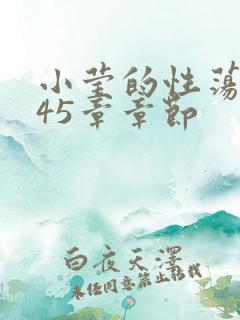 小莹的性荡
45章章节
白夜天泽
未经同意禁止转载